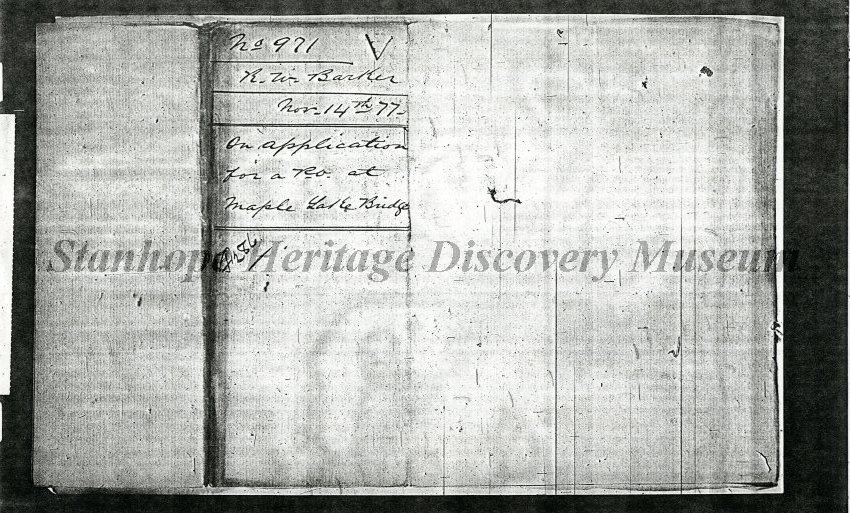 No 971
R. W. Barker
Nov. 14th 77.
On application
for a P.O. at
Maple Lake Bridge
Stanhope Heritage Discovery Museum